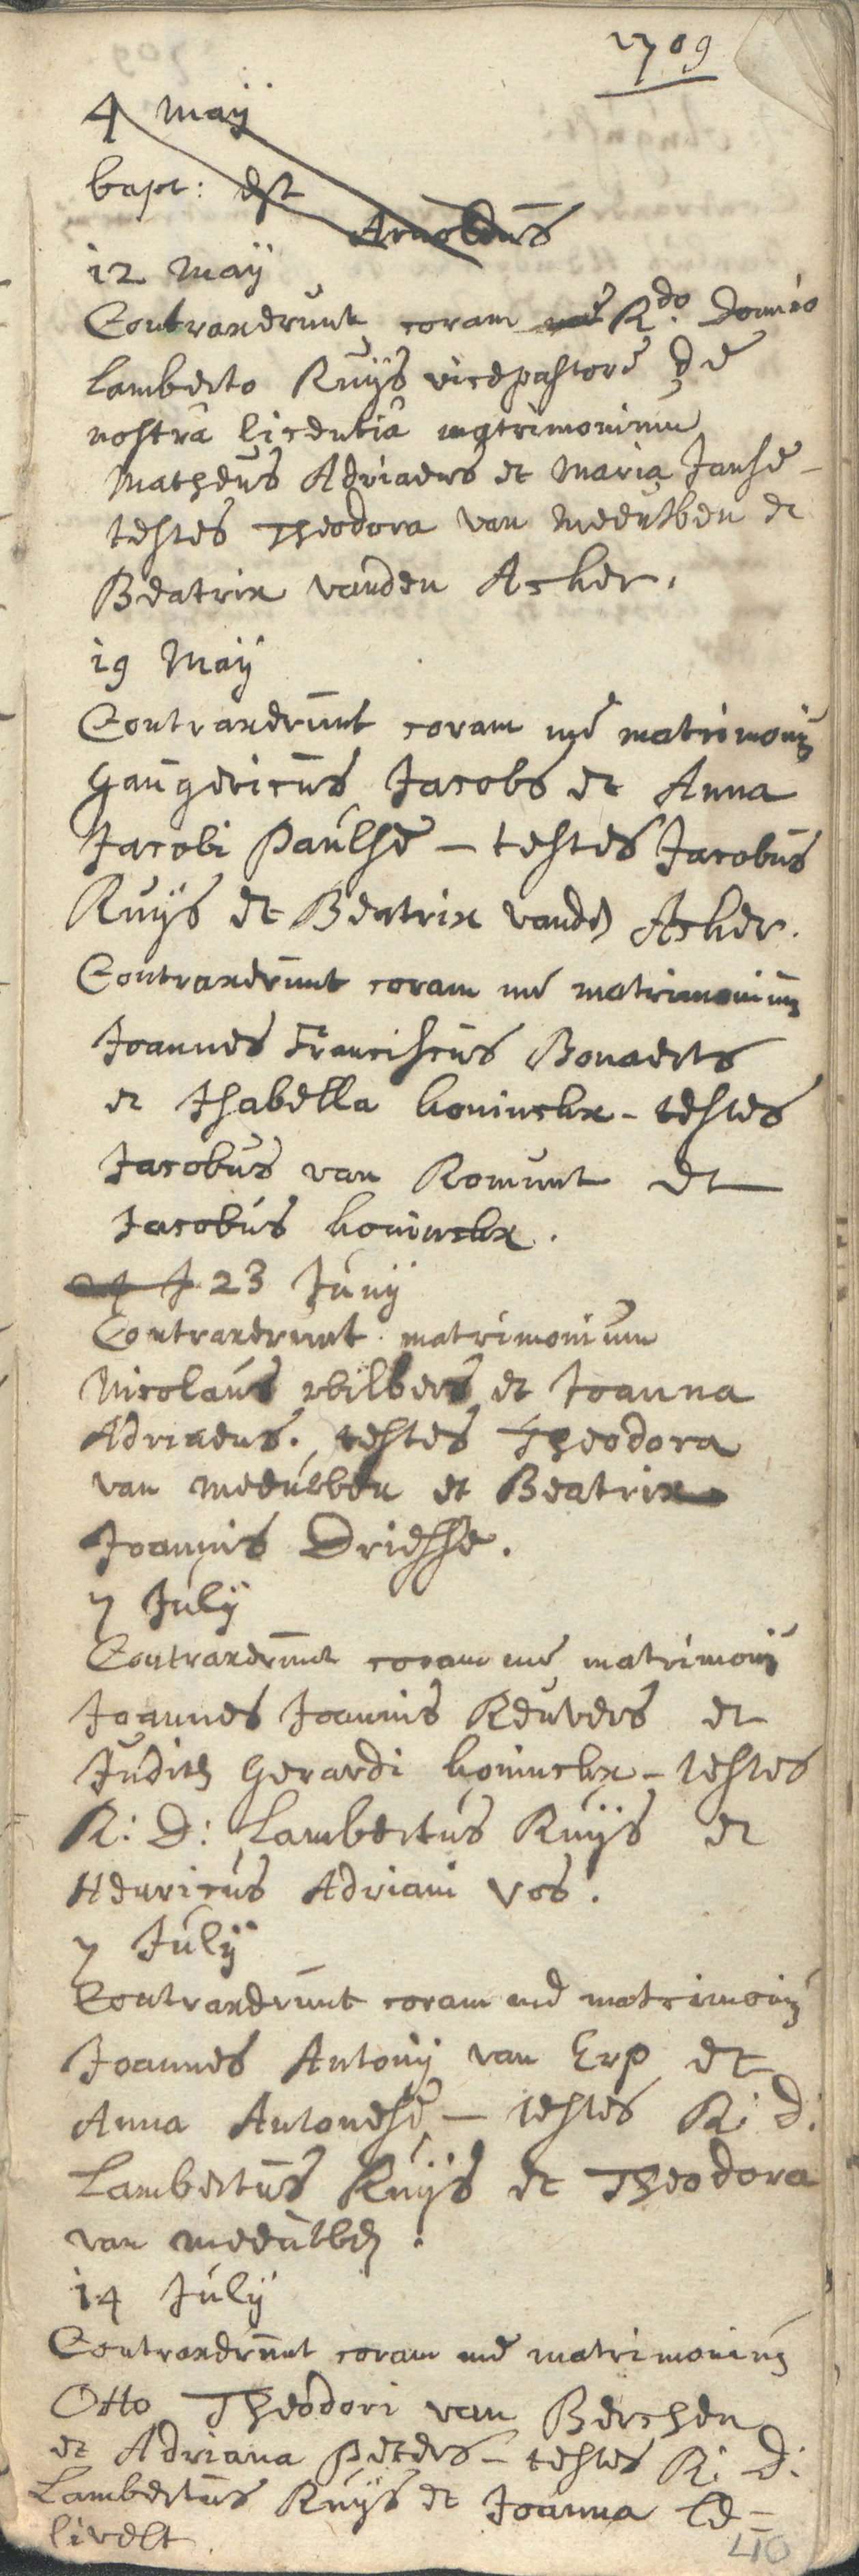 1709
4 Maÿ
bapt: est
Arnoldus
12 Maÿ
Contraxerunt coram me Rdo. Domino
Lamberto Ruÿs vicepastore de
nostra licentiâ matrimonium
Matheus Adriaens et Maria Janse -
testes Theodora van Meeulben et
Beatrix vanden Acker.
19 Maÿ
Contraxerunt coram me matrimoniū
Gaugericus Jacobs et Anna
Jacobi Paulse - testes Jacobus
Ruÿs et Beatrix vandē Acker.
Contraxerunt coram me matrimonium
Joannes Franciscus Bonaerts
et Isabella koninckx - testes
Jacobus van Romunt et
Jacobus koninckx.
23 Junÿ
Contraxerunt matrimonium
Nicolaus Wilbers et Joanna
Adriaens. testes Theodora
van Meeulben et Beatrix
Joannis Driesse.
7 Julÿ
Contraxerunt coram me matrimoniū
Joannes Joannis Reuvers et
Judith Gerardi koninckx - testes
R: D: Lambertus Ruÿs et
Henricus Adriani Vos.
7 Julÿ
Contraxerunt coram me matrimoniū
Joannes Antonÿ van Erp et
Anna Antonese - testes R: D:
Lambertus Ruÿs et Theodora
van Meeulbē.
14 Julÿ
Contraxerunt coram me matrimonium
Otto Theodori van Berchen
et Adriana Peters - testes R: D:
Lambertus Ruÿs et Joanna
40